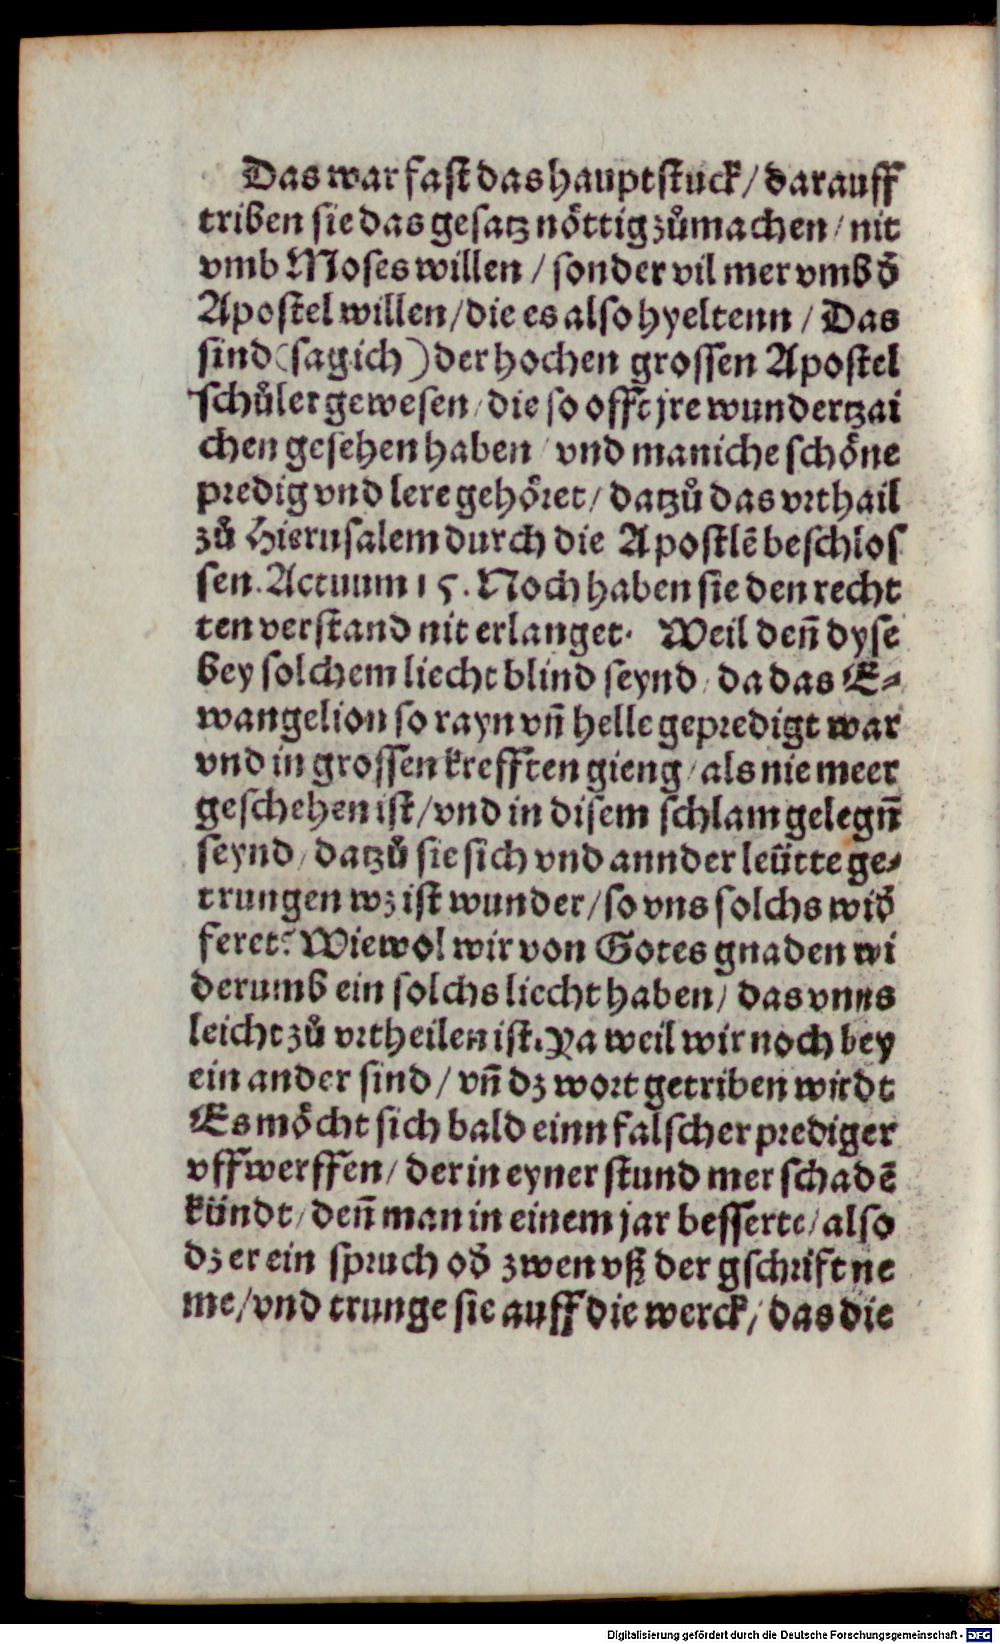 Das war fast das hauptstuck / darauff
triben sie das gesatz nöttig zůmachen / nit
vmb Moses willen / sonder vil mer vmb d̕
Apostel willen / die es also hyeltenn / Das
sind (sag ich) der hochen grossen Apostel
schůler gewesen / die so offt jre wundertzai
chen gesehen haben / vnd maniche schöne
predig vnd lere gehöret / datzů das vrthail
zů Hierusalem durch die Apostlē beschlos
sen. Actuum 15. Noch haben sie den recht
ten verstand nit erlanget. Weil den̄ dyse
bey solchem liecht blind seynd / da das E⸗
wangelion so rayn vn̄ helle gepredigt war
vnd in grossen krefften gieng / als nie meer
geschehen ist / vnd in disem schlam gelegn̄
seynd / datzů sie sich vnd annder leütte ge⸗
trungen wz ist wunder / so vns solchs wid̕
feret? Wiewol wir von Gotes gnaden wi
derumb ein solchs liecht haben / das vnns
leicht zů vrtheilen ist. Ya weil wir noch bey
ein ander sind / vn̄ dz wort getriben wirdt
Es möcht sich bald einn falscher prediger
vffwerffen / der in eyner stund mer schadē
kündt / den̄ man in einem jar besserte / also
dz er ein spruch od̕ zwen vß der gschrift ne
me / vnd trunge sie auff die werck / das die
Digitalisierung gefördert durch die Deutsche Forschungsgemeinschaft - DFG